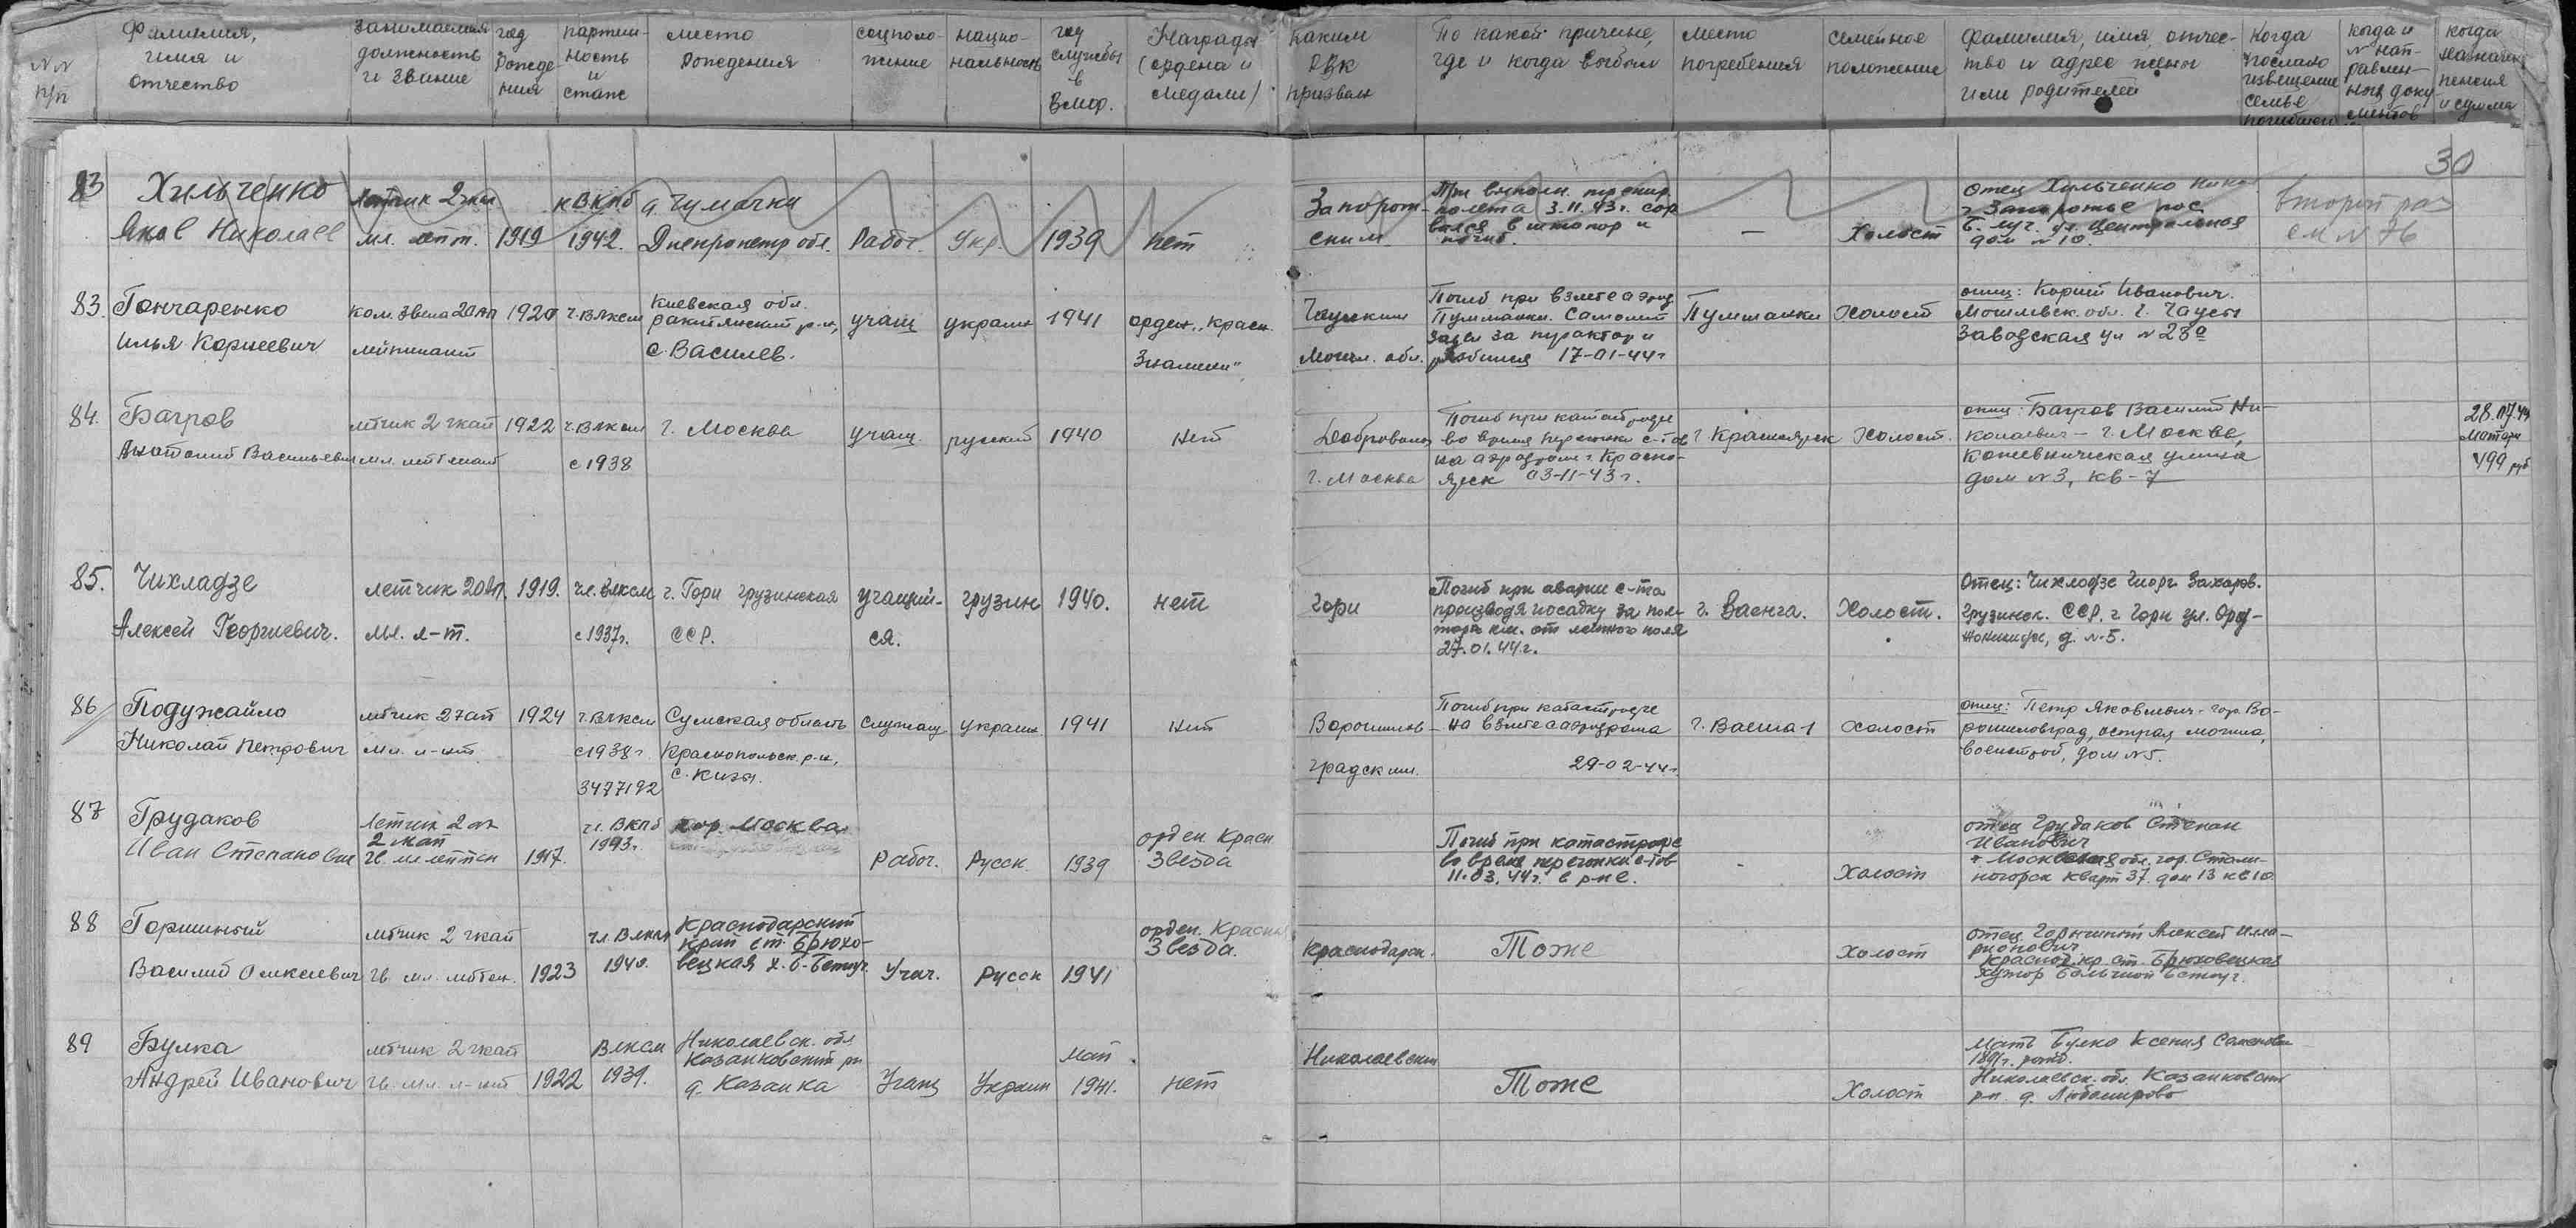 NN п/п
Фамилия, имя и отчество
занимаемая должность и звание
год рождения
партийность и стаж
место рождения
соцположение
национальность
год службы в ВМФ.
Награды (ордена и медали)
Каким РВК призван
По какой причине, где и когда выбыл
место погребения
семейное положение
Фамилия, имя, отчество и адрес жены или родителей
Когда послано извещение семье погибшего
когда и N направления документов
когда назначена пенсия и сумма
30
83 Хильченко
Яков Николаев
Летчик 2
мл. лейт. 1919
к ВКПб
1942.
д. Чумачки
Днепропетр обл. Рабоч. Укр. 1939 нет
Запорожским
При выполн. тренир. полета 3.11.43г. сорвался в штопор и погиб.
—
Холост
отец Хильченко
г. Запорожье пос.
ул. Центральная
дом N 10.
второй раз
см N 76
83. Гончаренко
Илья Корнеевич
Ком. звена 2 1920 ч. ВЛКСМ
лейтенант
Киевская обл.
ракитянский р-н,
с. Василев.
учащ украин 1941 орден „Красн.
Знамени"
Чаусским
Могил. обл.
Погиб при взлете с аэрод.
Пумманки. Самолет
задел за трактор и
разбился 17-01-44г
Пумманки Холост
отец: Корней Иванович.
Могилевск. обл. г. Чаусы
Заводская ул N 23а
84. Багров
Анатолий Васильевич
летчик 2 гкап 1922 ч. ВЛКСМ
мл. лейтенант с 1938
г. Москва учащ. русский 1940 нет
Доброволец
г. Москва
Погиб при катастрофе
во время перегонки с-тов
на аэродроме г. Красно-
ярск 03-11-43г.
г. Красноярск Холост.
отец: Багров Василий Ни-
колаевич - г. Москва,
Кожевническая улица
дом N 3, кв-7
499 руб
85. Чихладзе
Алексей Георгиевич.
летчик 20 1919. чл. ВЛКСМ
Мл. л-т. с 1937г.
г. Гори Грузинская
ССР.
учащий-
ся.
грузин 1940. нет
Гори
Погиб при аварии с-та
производя посадку за пол-
тора км. от летного поля
27.01.44г.
г. Ваенга. Холост.
Отец: Чихладзе Георг. Захаров.
Грузинск. ССР, г. Гори ул. Орд-
жоникидзе, д. N 5.
86 Подужайло
Николай Петрович
летчик 2 гкап 1924 ч. ВЛКСМ
мл. л-нт с 1938г.
3477192
Сумская область
Краснопольск. р-н,
служащ украин 1941 нет
Ворошилов-
градским.
Погиб при катастрофе
на взлете с аэродрома
29-02-44г.
г. Ваенга-1 холост
отец: Петр Яковлевич - гор. Во-
рошиловград, острая могила,
дом N 5.
87 Грудаков
Иван Степанович
Летчик
2 гкап
Гв. мл лейтен 1917.
чл. ВКПб
1943г.
гор. Москва
Рабоч. Русск. 1939
орден Красн
Звезда
Погиб при катастрофе
во время перегонки с-тов
11.03.44г. в р-не.
-
Холост
отец Грудаков Степан
Иванович
Московская обл. гор. Стали-
ногорск Кварт 37. дом 13 кв 10
88 Горшиный
Василий Алексеевич
летчик 2 гкап
Гв. мл. лейтен. 1923
чл. ВЛКСМ
1940.
Краснодарский
край ст. Брюхо-
вецкая х. Б-Бетауг.
Учащ. Русск 1941
орден. Красн
Звезда.
Краснодарск.
Тоже
Холост
отец Горшиный Алексей Илла-
рионович
Краснод. кр. ст. Брюховецкая
хутор Большой Бетауг.
89 Булка
Андрей Иванович
летчик 2 гкап
Гв. мл. л-нт 1922
ВЛКСМ
1939.
Николаевск. обл
Казанковский рн
д. Казанка
Учащ Украин
май
1941.
нет
Николаевским
Тоже
Холост
Мать Булка Ксения Семеновн
1891г. рожд.
Николаевск. обл. Казанковский
рн. д. Любомирово